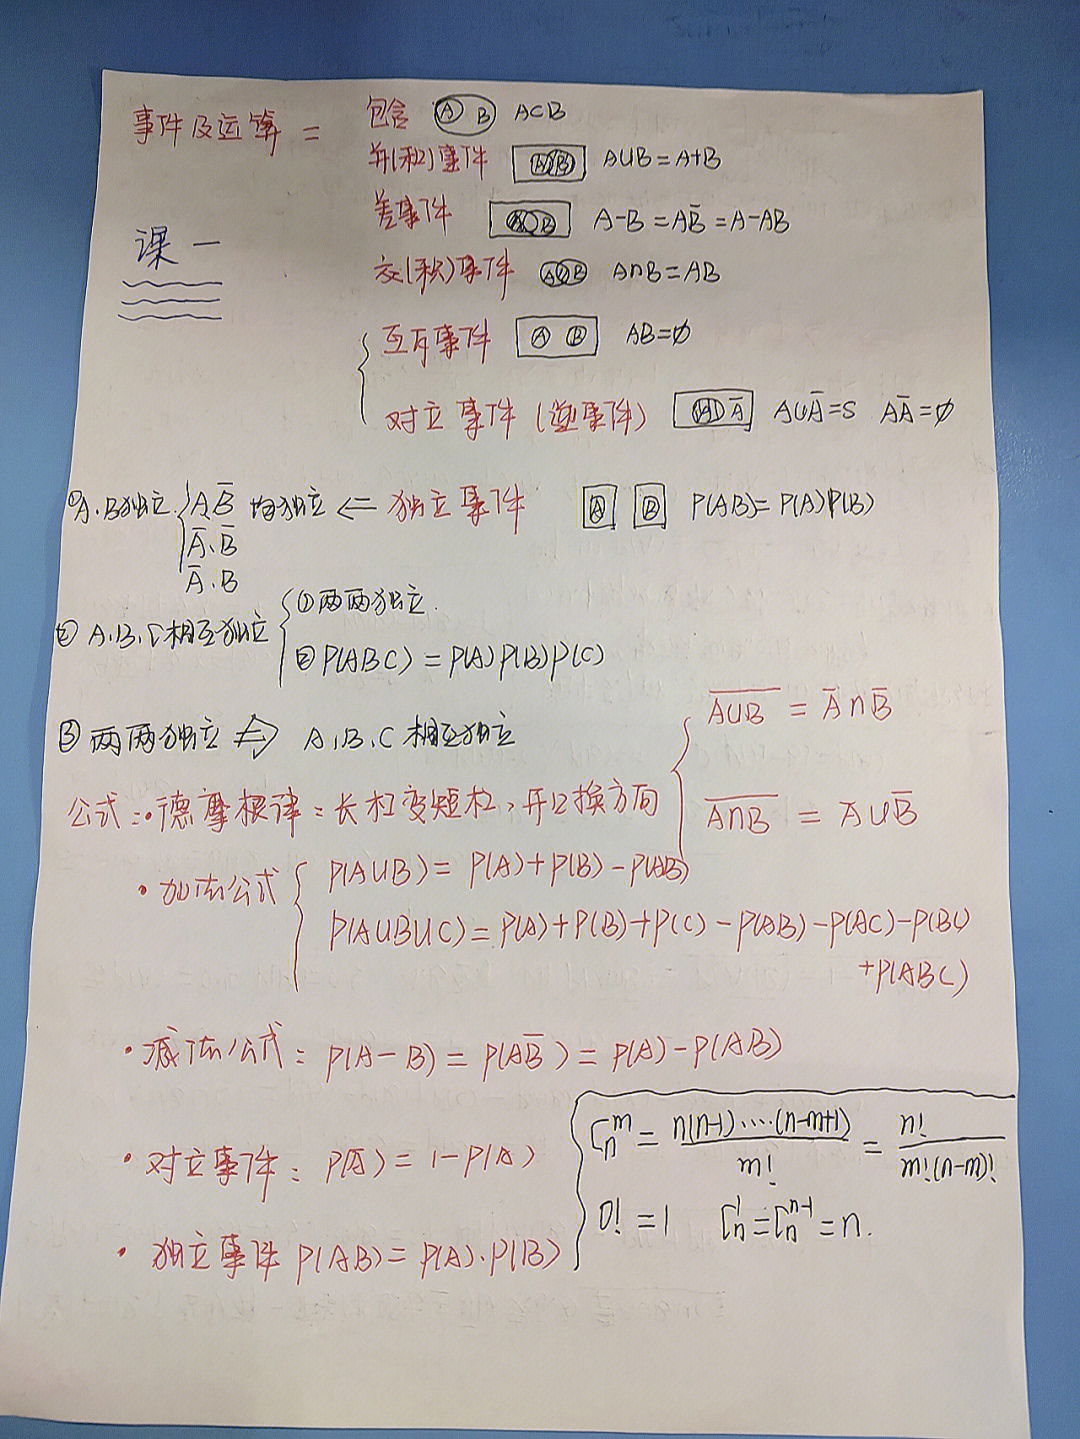 事件及运算：
包含 A B A⊂B
并(和)事件 A B A∪B=A+B
差事件 A B A-B=AB̅=A-AB
课一
交(积)事件 A B A∩B=AB
互斥事件 A B AB=∅
对立事件(逆事件) A A̅ A∪A̅=S AA̅=∅
①A、B独立 A、B̅ 均独立 ⇐ 独立事件 A B P(AB)=P(A)P(B)
A̅、B̅
A̅、B
② A、B、C相互独立 ①两两独立.
②P(ABC)=P(A)P(B)P(C)
③ 两两独立 ⇎ A、B、C相互独立
公式：·德摩根律：长杠变短杠，开口换方向
A∪B̅ = A̅∩B̅
A∩B̅ = A̅∪B̅
·加法公式 P(A∪B)=P(A)+P(B)-P(AB)
P(A∪B∪C)=P(A)+P(B)+P(C)-P(AB)-P(AC)-P(BC)
+P(ABC)
·减法公式：P(A-B)=P(AB̅)=P(A)-P(AB)
·对立事件：P(A̅)=1-P(A)
·独立事件 P(AB)=P(A)·P(B)
C_n^m = n(n-1)····(n-m+1)/m! = n!/m!(n-m)!
0!=1 C_n^1=C_n^{n-1}=n.